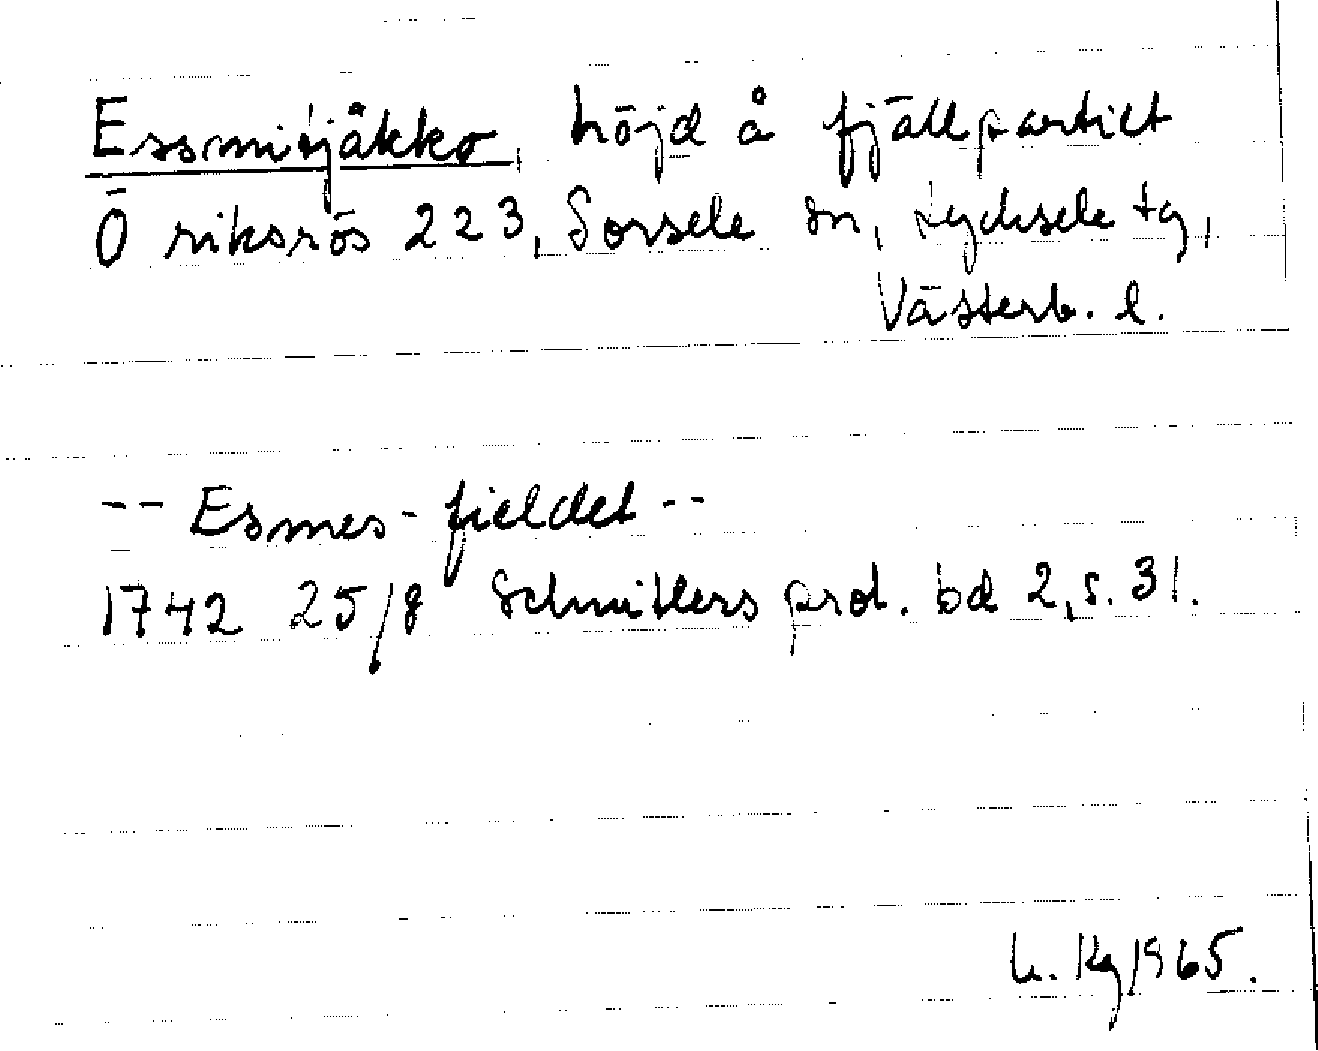 Essmitjåkko, höjd å fjällpartiet
Ö riksrös 223, Sorsele sn, Lycksele tg,
Västerb. l.
-- Esmes-fieldet --
1742 25/8 Schnitlers prot. bd 2, s. 31.
h. Kg 1965.